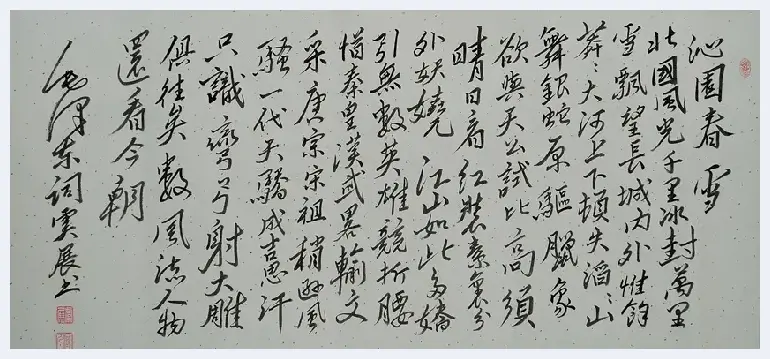 沁園春雪
北國風光千里冰封萬里
雪飄望長城内外惟餘
莽〻大河上下頓失滔〻山
舞銀蛇原驅臘象
欲與天公試比高須
晴日看红裝素裹分
外妖嬈江山如此多嬌
引無數英雄競折腰
惜秦皇漢武畧輸文
采唐宗宋祖稍遜風
騷一代天驕成吉思汗
只識彎弓射大雕
俱往矣數風流人物
還看今朝
毛澤东詞雲展书